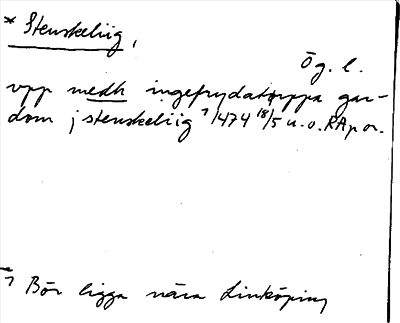 * Stenskeliig,
Ög. l.
vpp medh ingefrydatorppa gar-
dom j stenskeliig ⁊ 1474 18/5 u.o. RAp or.
⁊ Bör ligga nära Linköping